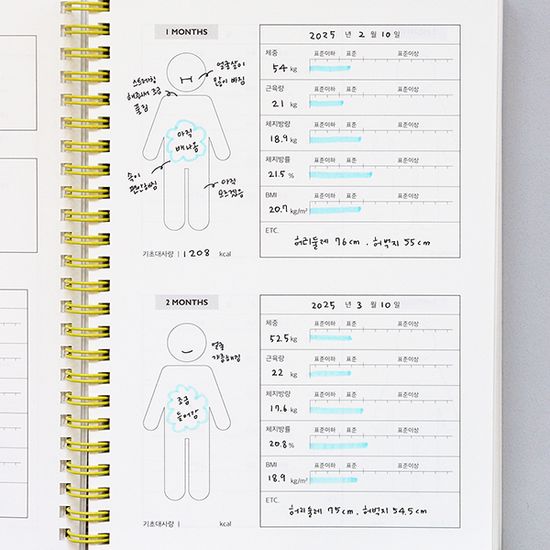 1 MONTHS
얼굴살이
많이 빠짐
스트레칭
해줘서 조금
풀림
아직
배나옴
속이
편안해짐
아직
모르겠음
기초대사량 | 1208 kcal
2025 년 2 월 10 일
체중 표준이하 표준 표준이상
54 kg
근육량 표준이하 표준 표준이상
21 kg
체지방량 표준이하 표준 표준이상
18.9 kg
체지방률 표준이하 표준 표준이상
21.5 %
BMI 표준이하 표준 표준이상
20.7 kg/m²
ETC.
허리둘레 76cm . 허벅지 55cm
2 MONTHS
얼굴
갸름해짐
조금
들어감
기초대사량 | kcal
2025 년 3 월 10 일
체중 표준이하 표준 표준이상
52.5 kg
근육량 표준이하 표준 표준이상
22 kg
체지방량 표준이하 표준 표준이상
17.6 kg
체지방률 표준이하 표준 표준이상
20.8 %
BMI 표준이하 표준 표준이상
18.9 kg/m²
ETC.
허리둘레 75cm, 허벅지 54.5cm